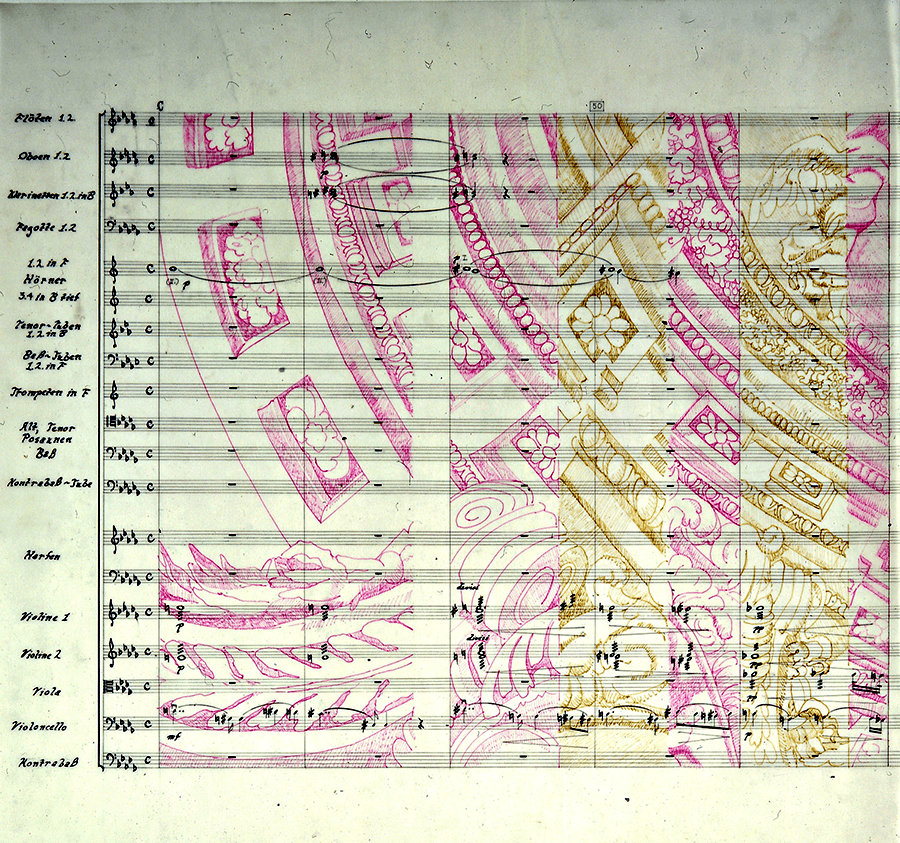 C
50
Flöten 1.2
Oboen 1.2
Klarinetten 1.2 in B
Fagotte 1.2
1.2 in F
Hörner
3.4 in B tief
Tenor-Tuben
1.2 in B
Baß-Tuben
1.2 in F
Trompeten in F
Alt, Tenor
Posaunen
Baß
Kontrabaß-Tube
Harfen
Violine 1
divisi
p
pp
Violine 2
divisi
p
Viola
Violoncello
mf
p
Kontrabaß